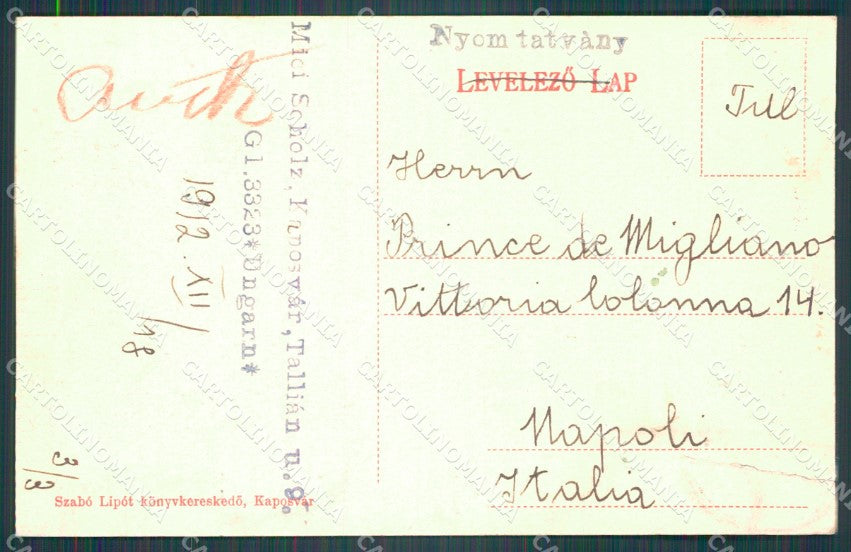 Nyomtatvány
LEVELEZŐ LAP
Tull
Herrn
Prince de Migliano
Vittoria Colonna 14.
Napoli
Italia
Mici Scholz, Kaposvár, Tallián u. 9.
Gl. 3323*Ungarn*
1912. XII/18
3/3
Szabó Lipót könyvkereskedő, Kaposvár
CARTOLINOMANIA